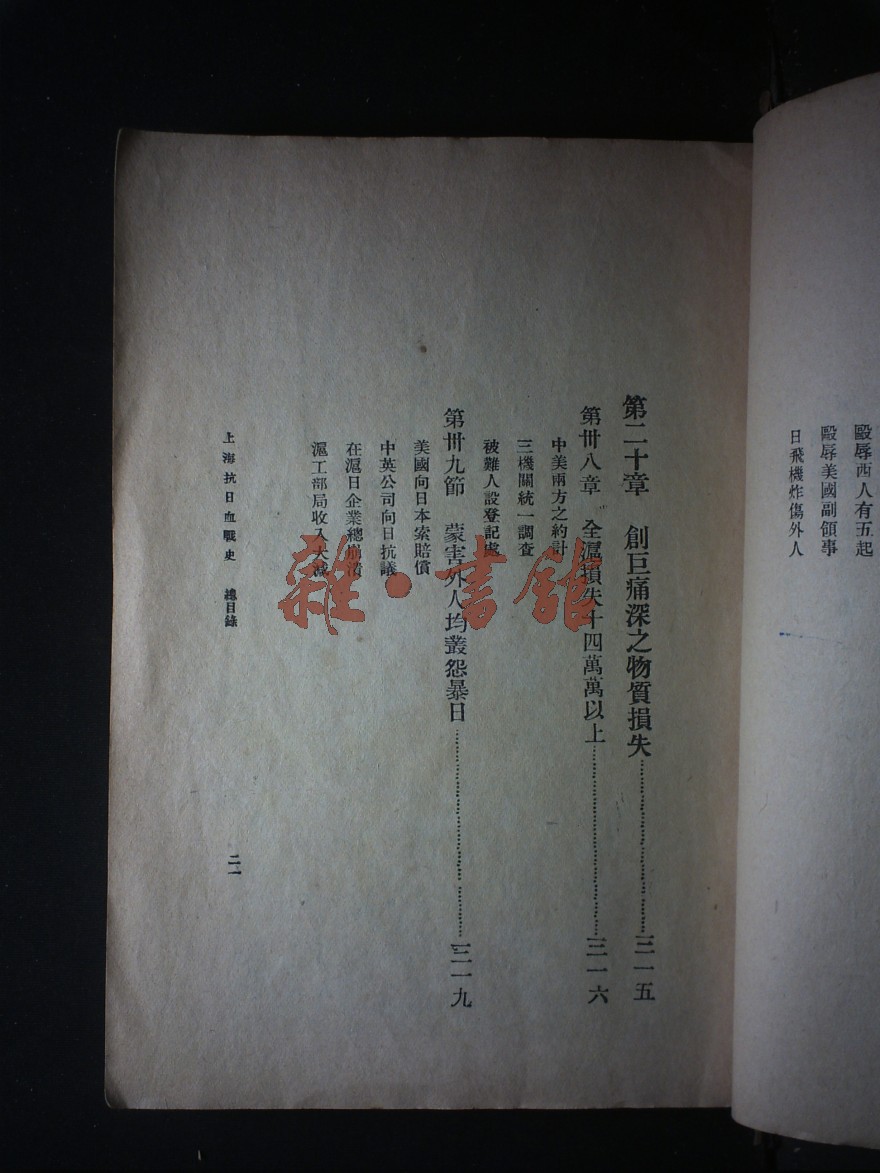 毆辱西人有五起
毆辱美國副領事
日飛機炸傷外人
第二十章　創巨痛深之物質損失…………三一五
第卅八章　全滬損失十四萬萬以上…………三一六
中美兩方之約計
三機關統一調查
被難人設登記處
第卅九節　蒙害外人均叢怨暴日…………三一九
美國向日本索賠償
中英公司向日抗議
在滬日企業總崩潰
滬工部局收入大減
上海抗日血戰史　總目錄
二一
雜·書館